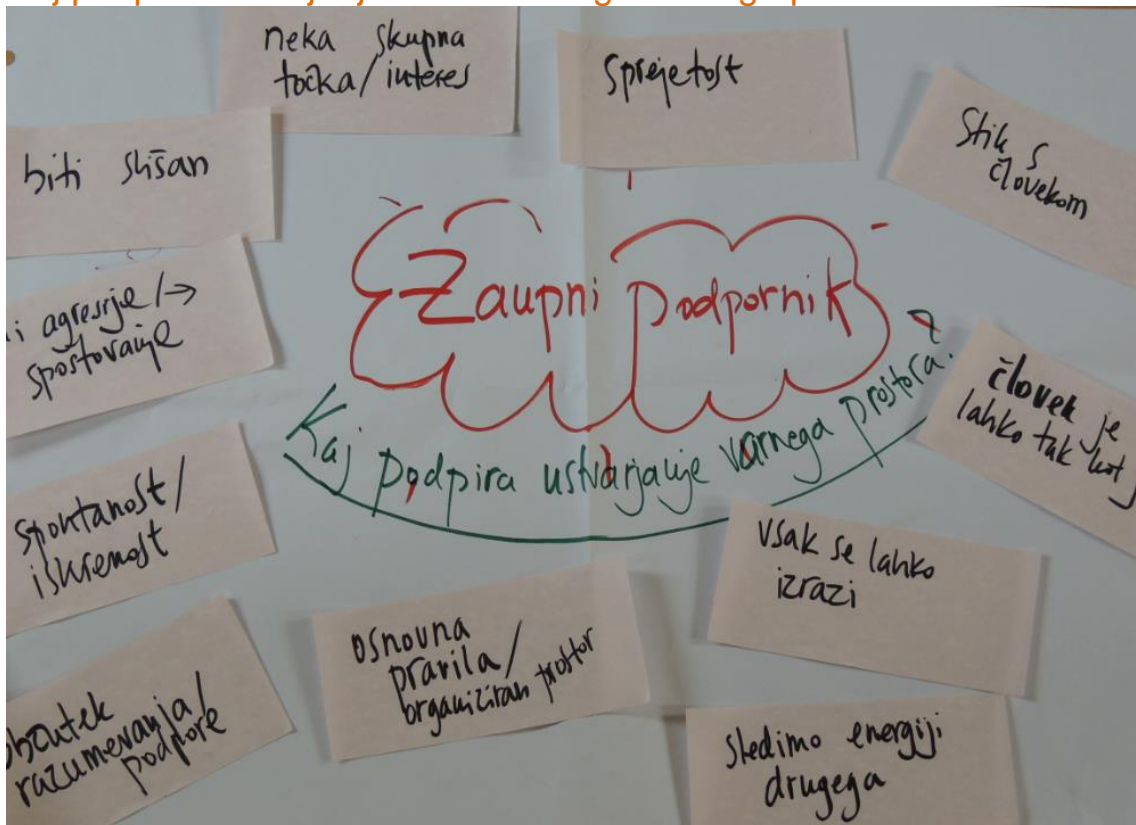 neka skupna
točka/interes
sprejetost
Stik s
človekom
biti slišan
Zaupni podpornik
Kaj podpira ustvarjanje varnega prostora?
ni agresije/→
spoštovanje
človek je
lahko tak kot
spontanost/
iskrenost
vsak se lahko
izrazi
osnovna
pravila/
organiziran prostor
občutek
razumevanja/
podpore
sledimo energiji
drugega